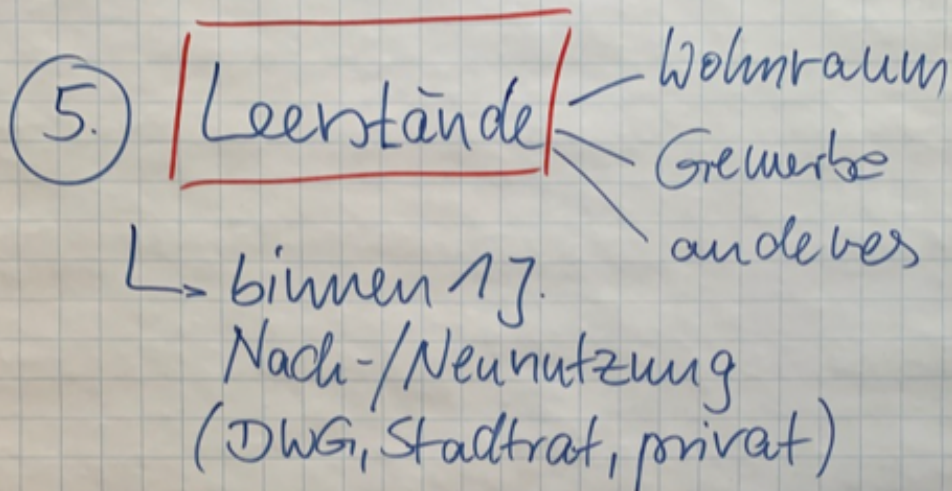 5. Leerstände
Wohnraum
Gewerbe
anderes
binnen 1 J.
Nach-/Neunutzung
(DWG, Stadtrat, privat)